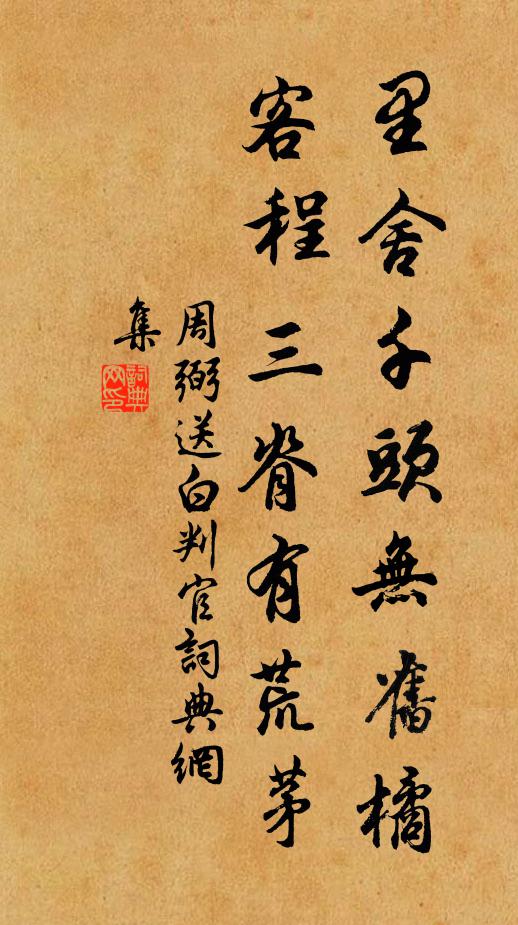 里舍千頭無舊橘
客程三脊有荒茅
周弼送白判官詞典網
集
詞典網印